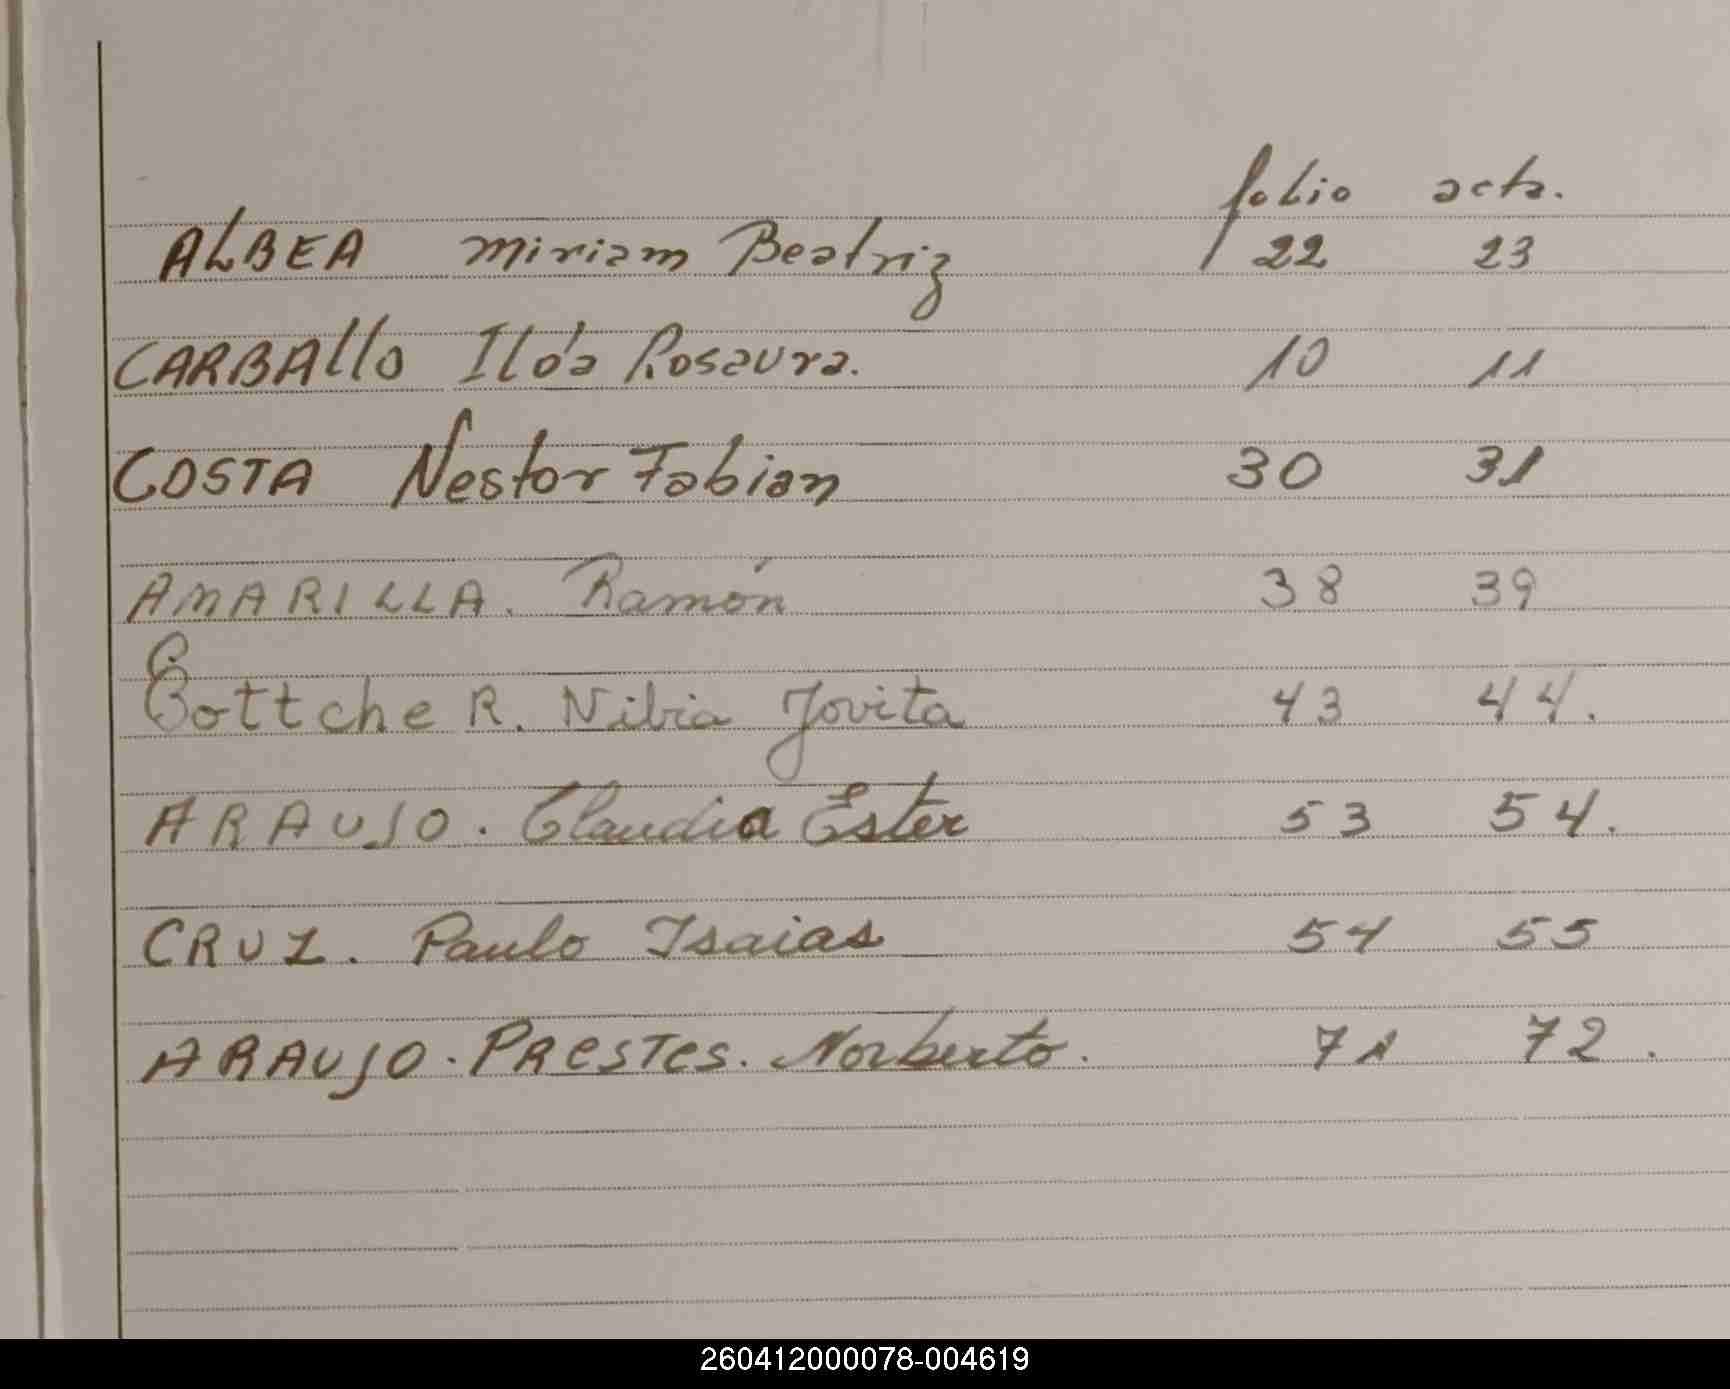 folio acta.
ALBEA Miriam Beatriz 22 23
CARBALLO Ilda Rosaura. 10 11
COSTA Nestor Fabian 30 31
AMARILLA. Ramón 38 39
Bottche R. Nibia Jovita 43 44.
ARAUJO. Claudia Ester 53 54.
CRUZ. Paulo Isaias 54 55
ARAUJO. PRESTES. Norberto. 71 72.
260412000078-004619